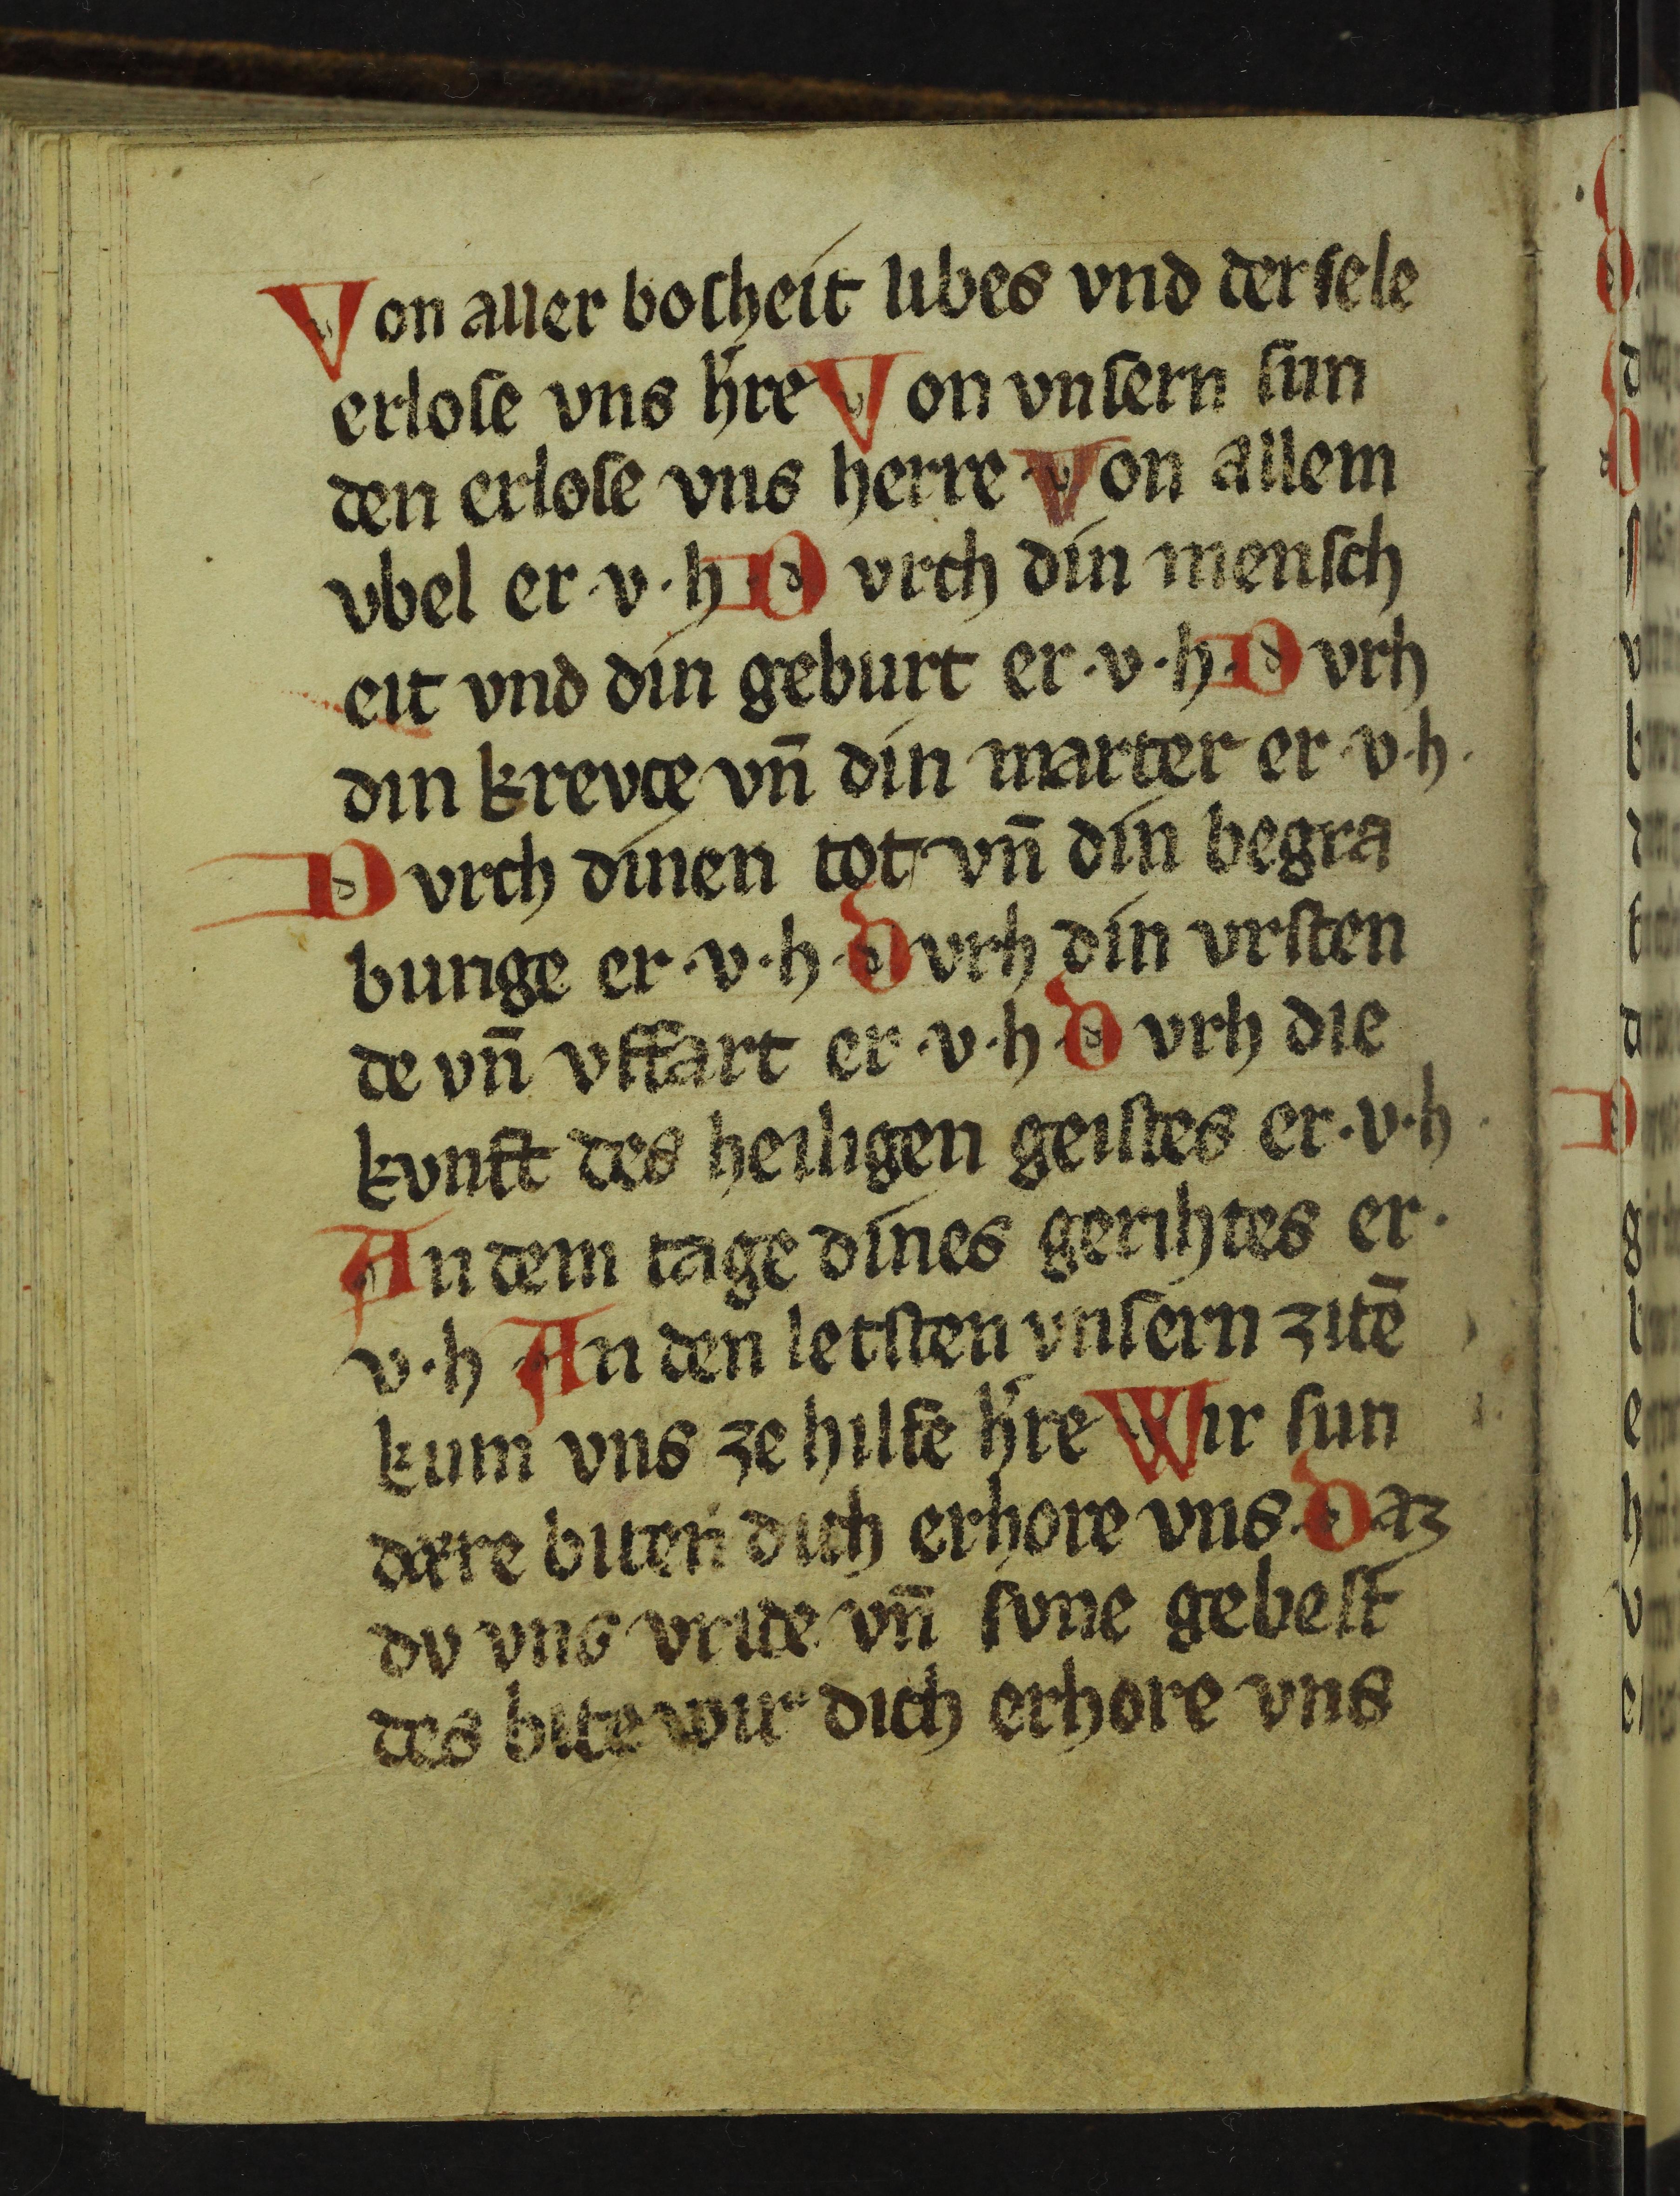 Von aller boſheit libes vnd der ſele
erloſe vns h̓re Von vnſern ſun
den erloſe vns herre Von allem
vbel er · v · h Dvrch din menſch
eit vnd din geburt er · v · h · Dvrh
din krevce vn̄ din marter er · v · h ·
Dvrch dinen tot vn̄ din begra
bunge er · v · h · Dvrh din vrſten
de vn̄ vffart er · v · h · Dvrh die
kvnft des heiligen geiſtes er · v · h ·
An dem tage dines gerihtes er ·
v · h An den letſten vnſern zitē
kum vns ze hilfe h̓re Wir ſun
dere biten dich erhore vns · Daz
dv vns vride vn̄ ſvne gebeſt
des bite wir dich erhore vns